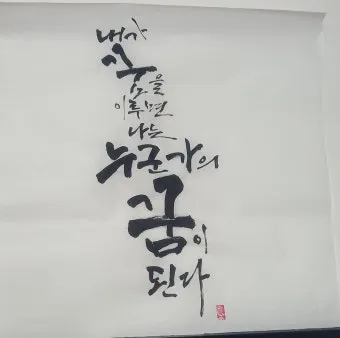 내가
꿈을
이루면
나는
누군가의
꿈이
된다